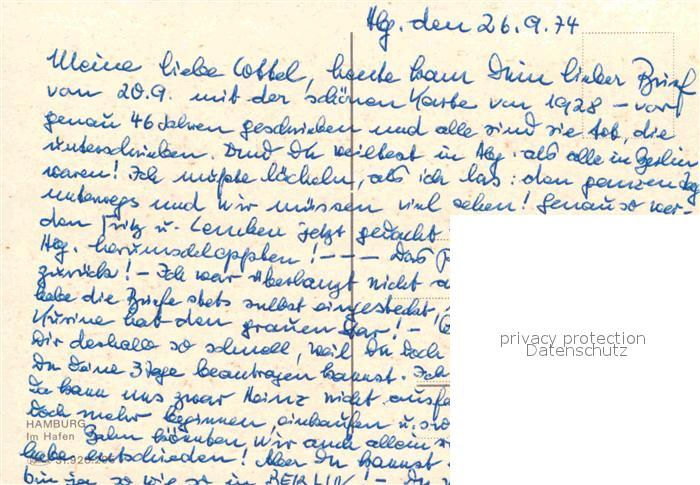 Hbg. den 26.9.74
Meine liebe Cottel, heute kam Dein lieber Brief
vom 20.9. mit der schönen Karte von 1928 – vor
genau 46 Jahren geschrieben und alle sind sie tot, die
unterschrieben. Und Du weiltest in Hbg. als alle in Berlin
waren! Ich mußte lächeln, als ich las: den ganzen Tag
unterwegs und wir müssen viel sehen! Genau so wer-
den Fritz u. Lenchen jetzt gedacht
Hbg. herumschleppen! – – – Das
zurück! – Ich war überhaupt nicht
habe die Briefe stets selbst eingesteckt,
hat den grauen Star! –
Dir deshalb so schnell, weil Du doch
Du Deine 3 Tage beantragen kannst. Ich
Da kann uns zwar Heinz nicht
doch mehr beginnen, einkaufen u. so
Bahn könnten wir auch allein
habe entschieden! Aber Du kannst
bin ja so wie so in BERLIN! – Du
privacy protection
Datenschutz
HAMBURG
Im Hafen